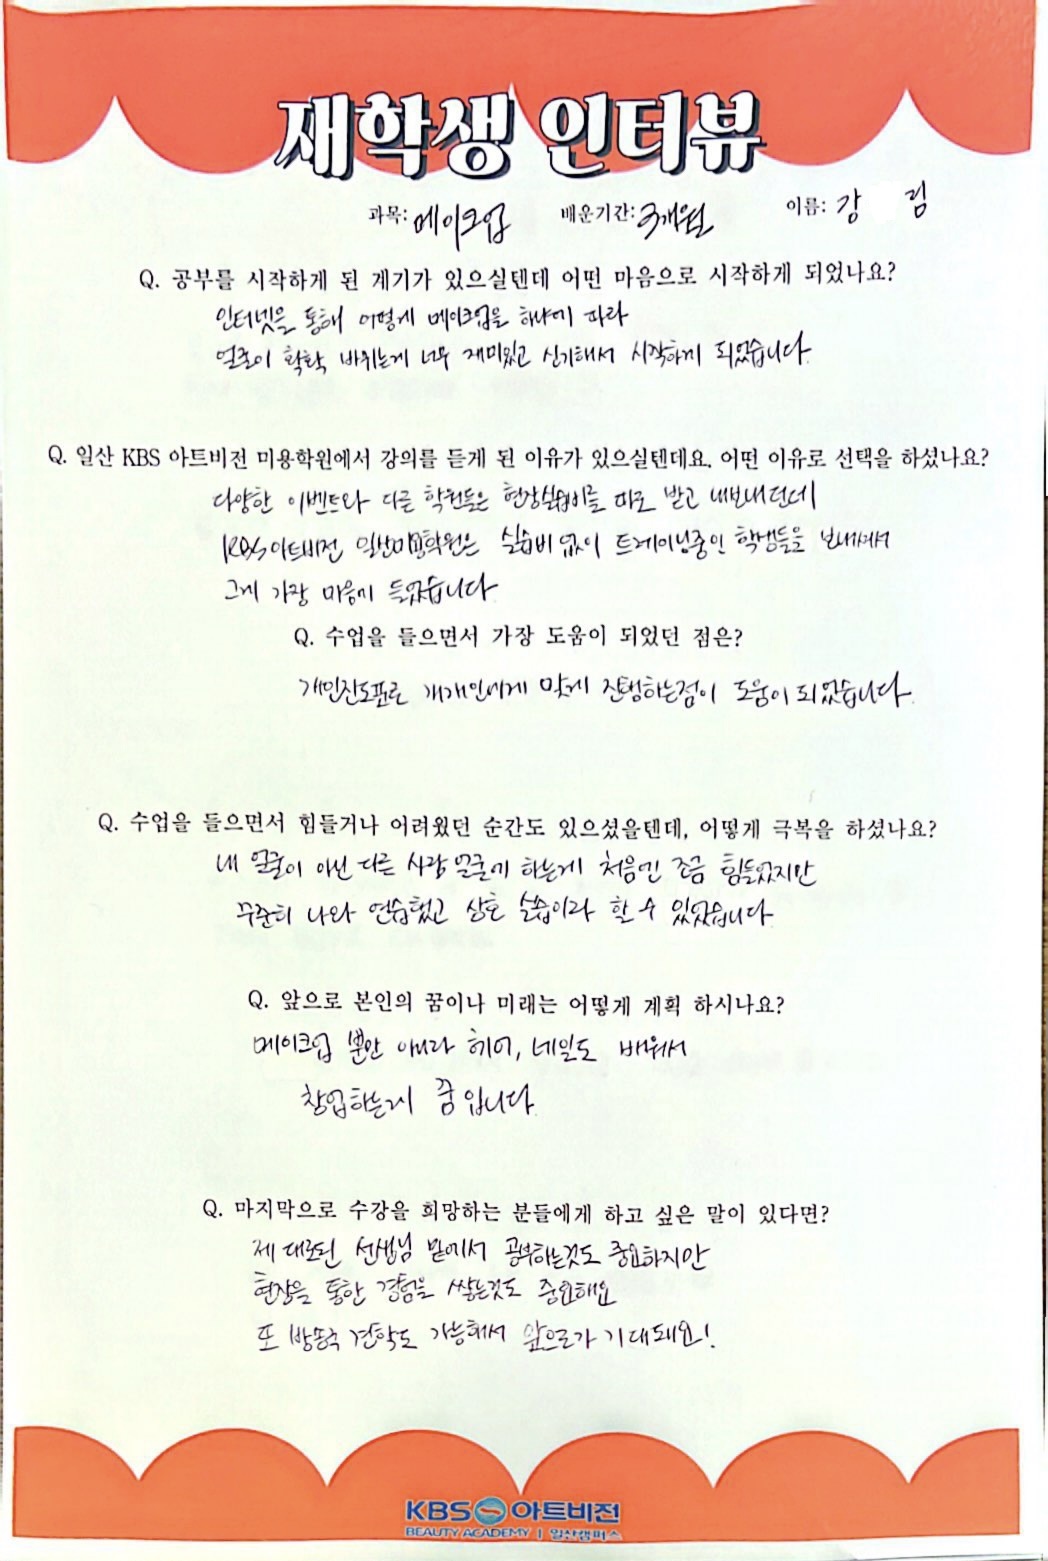 재학생 인터뷰
과목: 메이크업 배운기간: 3개월 이름: 강 림
Q. 공부를 시작하게 된 계기가 있으실텐데 어떤 마음으로 시작하게 되었나요?
인터넷을 통해 어떻게 메이크업을 하냐에 따라
얼굴이 확확 바뀌는게 너무 재미있고 신기해서 시작하게 되었습니다.
Q. 일산 KBS 아트비전 미용학원에서 강의를 듣게 된 이유가 있으실텐데요. 어떤 이유로 선택을 하셨나요?
다양한 이벤트와 다른 학원들은 현장실습비를 따로 받고 내보내던데
KBS아트비전 일산미용학원은 실습비 없이 트레이닝중인 학생들을 보내줘서
그게 가장 마음에 들었습니다.
Q. 수업을 들으면서 가장 도움이 되었던 점은?
개인진도표로 개개인에게 맞게 진행하는점이 도움이 되었습니다.
Q. 수업을 들으면서 힘들거나 어려웠던 순간도 있으셨을텐데, 어떻게 극복을 하셨나요?
내 얼굴이 아닌 다른 사람 얼굴에 하는게 처음엔 조금 힘들었지만
꾸준히 나와 연습했고 상호 실습이라 할 수 있었습니다.
Q. 앞으로 본인의 꿈이나 미래는 어떻게 계획 하시나요?
메이크업 뿐만 아니라 헤어, 네일도 배워서
창업하는게 꿈입니다.
Q. 마지막으로 수강을 희망하는 분들에게 하고 싶은 말이 있다면?
제대로된 선생님 밑에서 공부하는것도 중요하지만
현장을 통한 경험을 쌓는것도 중요해요
또 방송국 견학도 가능해서 앞으로가 기대돼요!
KBS 아트비전
BEAUTY ACADEMY | 일산캠퍼스